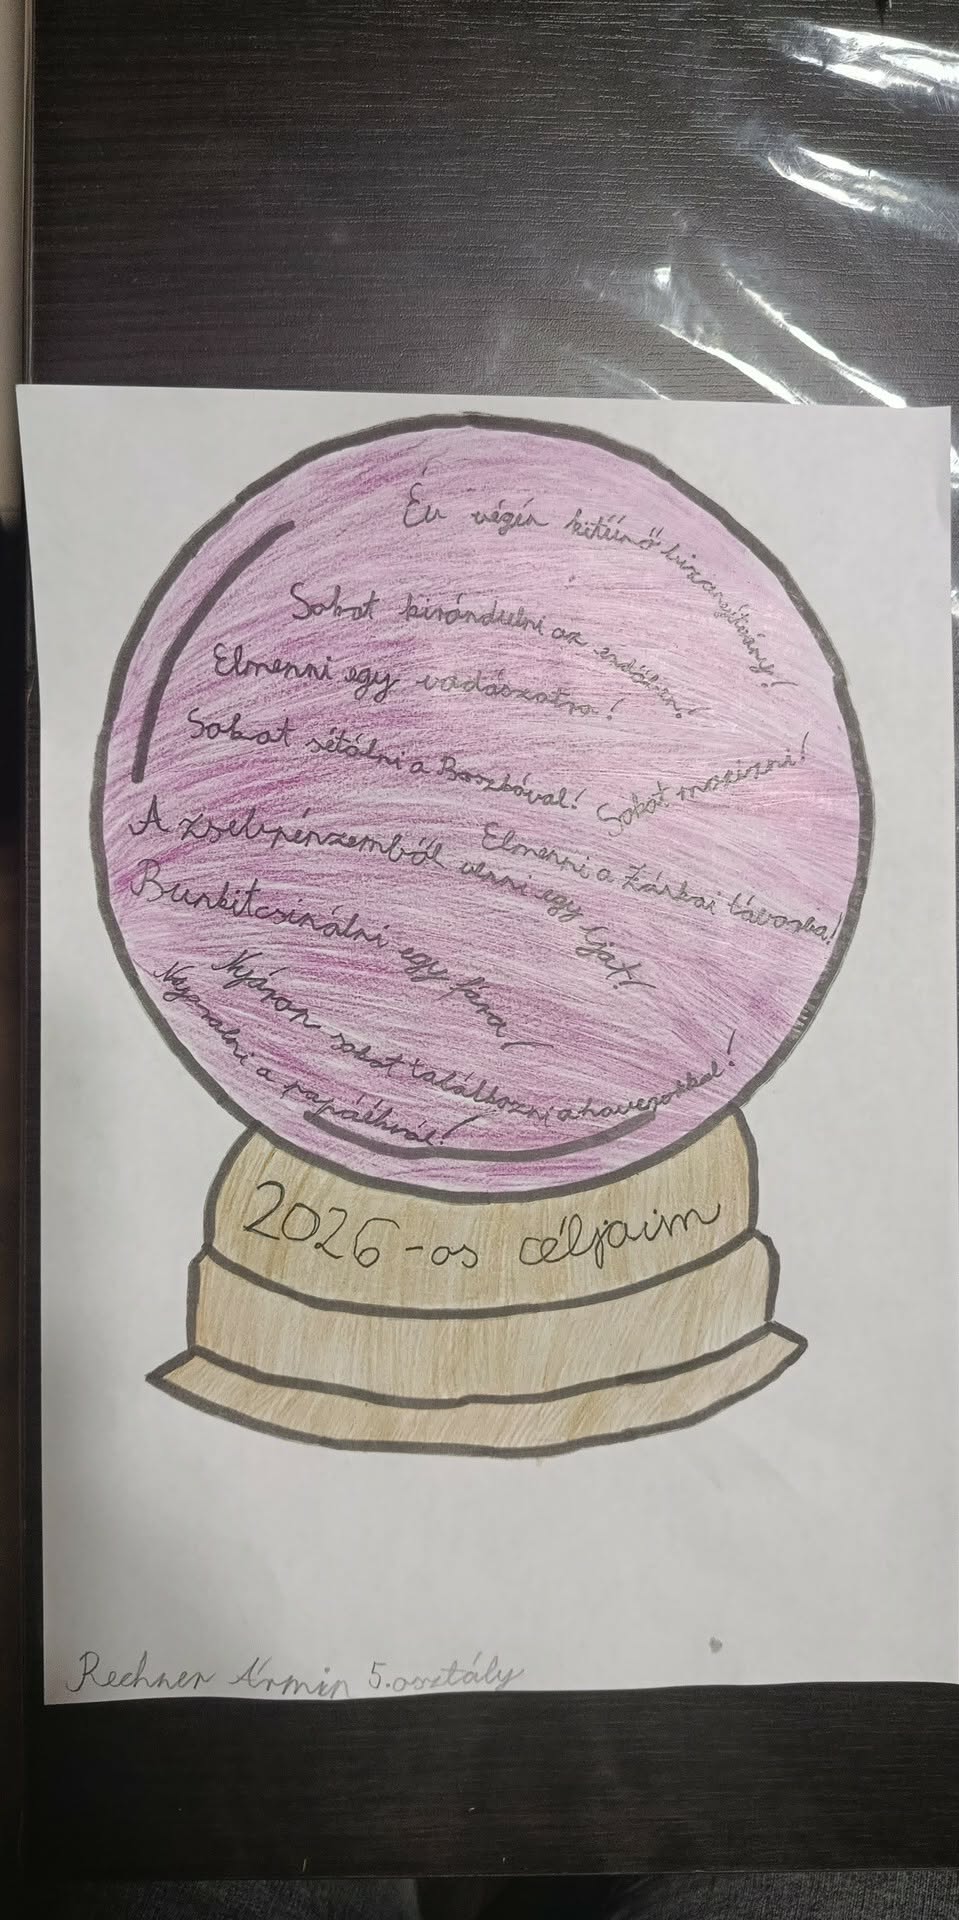 Év végén kitűnő bizonyítvány!
Sokat kirándulni az erdőben!
Elmenni egy vadászatra!
Sokat sétálni a Boszkóval!
Sokat mozizni!
Elmenni a Zárkai távosba!
A zsebpénzemből venni egy íjat!
Bunkit csinálni egy fára!
Nyáron sokat találkozni a haverokkal!
Nyaralni a papáéknál!
2026-os céljaim
Rechner Ármin 5.osztály